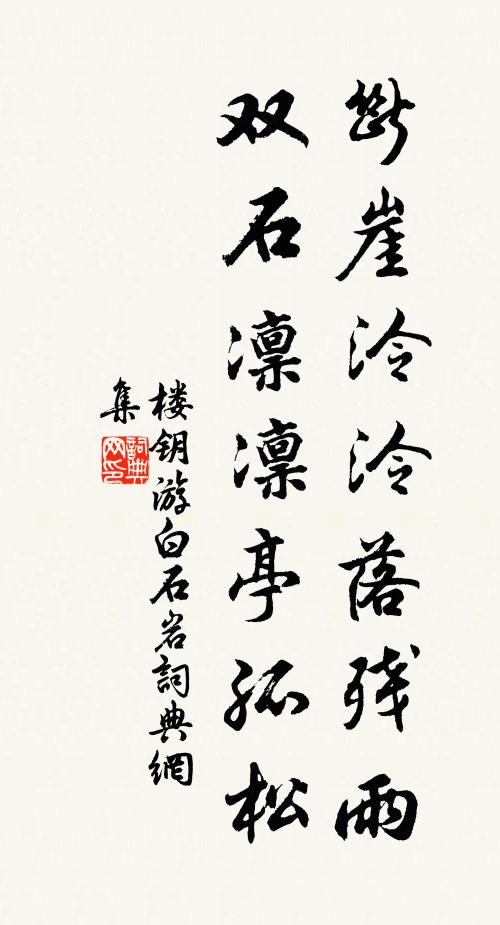 断崖泠泠落残雨
双石凛凛亭孤松
楼钥游白石岩詞典網
集
詞典网印